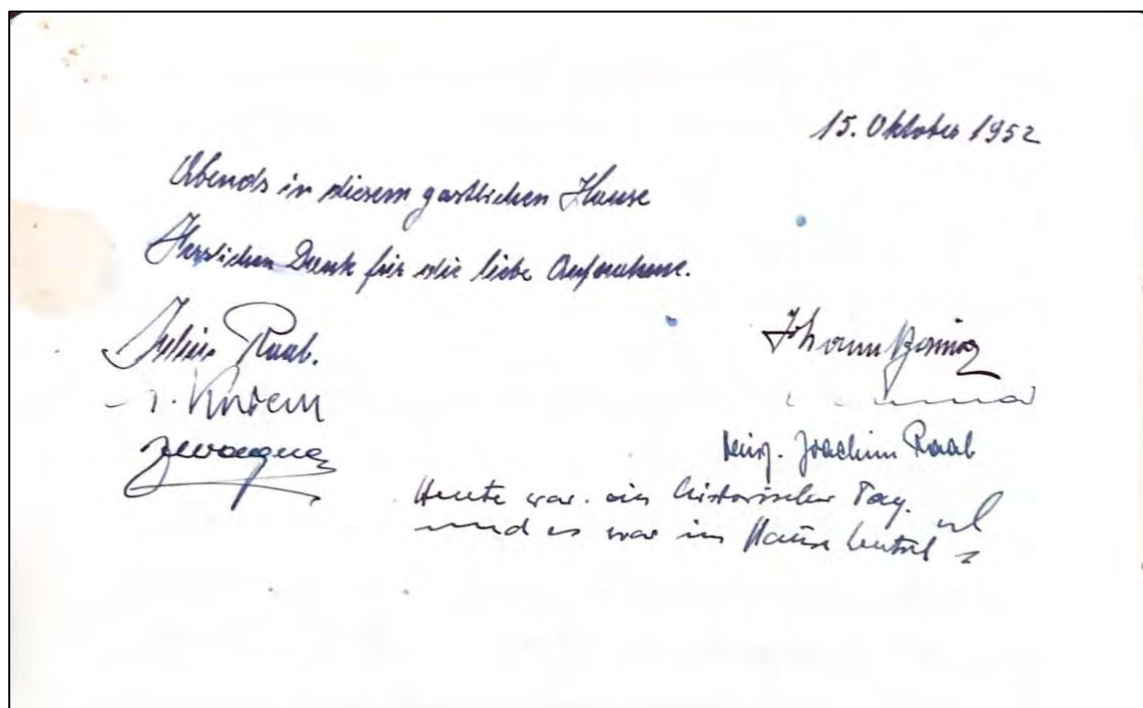 15. Oktober 1952
Abends in diesem gastlichen Hause
Herzlichen Dank für die liebe Aufnahme.
Julius Raab.
Johann
Joachim Raab
Heute war ein historischer Tag.
und es war im Hause